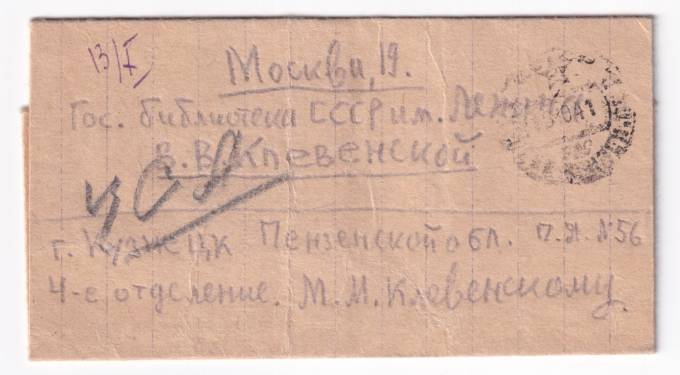 13/I
Москва, 19.
Гос. библиотека СССР им. Ленина
В. В. Клевенской
г. Кузнецк Пензенской обл. п.я. №56
4-е отделение. М.М. Клевенскому.